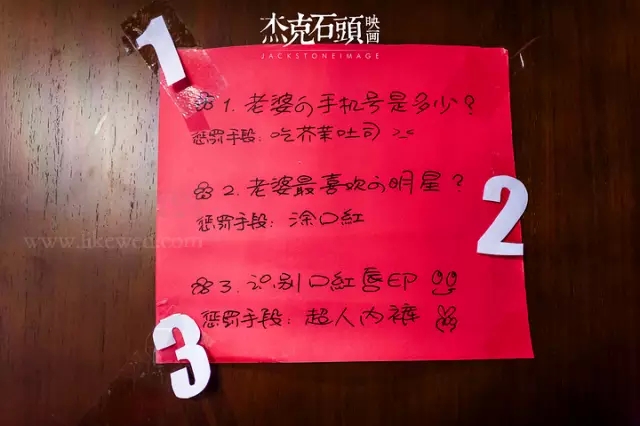 杰克石頭映画
JACKSTONEIMAGE
1
1. 老婆の手机号是多少?
惩罚手段: 吃芥茉吐司
2. 老婆最喜欢の明星?
惩罚手段: 涂口紅
2
www.likewed.com
3. 识别口紅唇EP
惩罚手段: 超人内裤
3